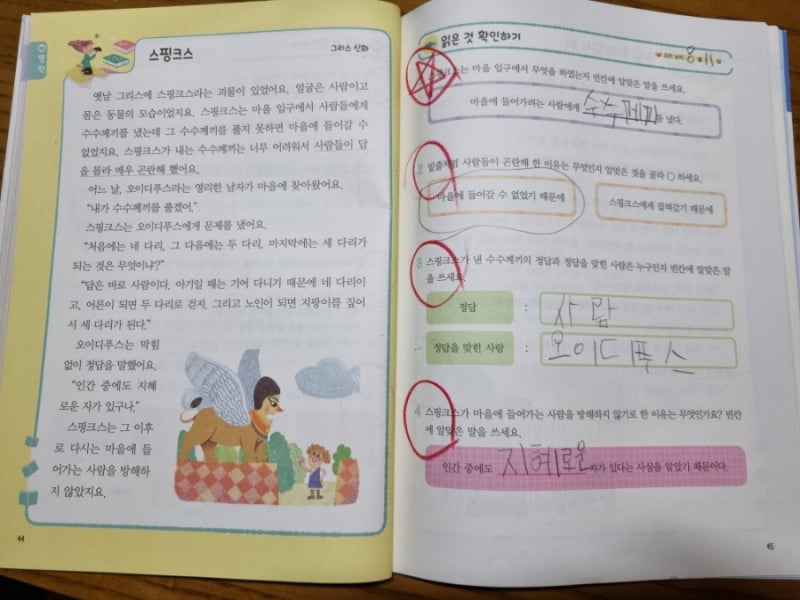 명작
스핑크스
그리스 신화
옛날 그리스에 스핑크스라는 괴물이 있었어요. 얼굴은 사람이고
몸은 동물의 모습이었지요. 스핑크스는 마을 입구에서 사람들에게
수수께끼를 냈는데 그 수수께끼를 풀지 못하면 마을에 들어갈 수
없었지요. 스핑크스가 내는 수수께끼는 너무 어려워서 사람들이 답
을 몰라 매우 곤란해 했어요.
어느 날, 오이디푸스라는 영리한 남자가 마을에 찾아왔어요.
“내가 수수께끼를 풀겠어.”
스핑크스는 오이디푸스에게 문제를 냈어요.
“처음에는 네 다리, 그 다음에는 두 다리, 마지막에는 세 다리가
되는 것은 무엇이냐?”
“답은 바로 사람이다. 아기일 때는 기어 다니기 때문에 네 다리이
고, 어른이 되면 두 다리로 걷지. 그리고 노인이 되면 지팡이를 짚어
서 세 다리가 된다.”
오이디푸스는 막힘
없이 정답을 말했어요.
“인간 중에도 지혜
로운 자가 있구나.”
스핑크스는 그 이후
로 다시는 마을에 들
어가는 사람을 방해하
지 않았지요.
44
읽은 것 확인하기
읽은 날짜 8월 11일
스핑크스는 마을 입구에서 무엇을 하였는지 빈칸에 알맞은 말을 쓰세요.
마을에 들어가려는 사람에게 수수께끼를 냈다.
2 밑줄처럼 사람들이 곤란해 한 이유는 무엇인지 알맞은 것을 골라 ○ 하세요.
마을에 들어갈 수 없었기 때문에
스핑크스에게 잡혀갔기 때문에
3 스핑크스가 낸 수수께끼의 정답과 정답을 맞힌 사람은 누구인지 빈칸에 알맞은 말
을 쓰세요.
정답 : 사람
정답을 맞힌 사람 : 오이디푸스
4 스핑크스가 마을에 들어가는 사람을 방해하지 않기로 한 이유는 무엇인가요? 빈칸
에 알맞은 말을 쓰세요.
인간 중에도 지혜로운 자가 있다는 사실을 알았기 때문이다.
45